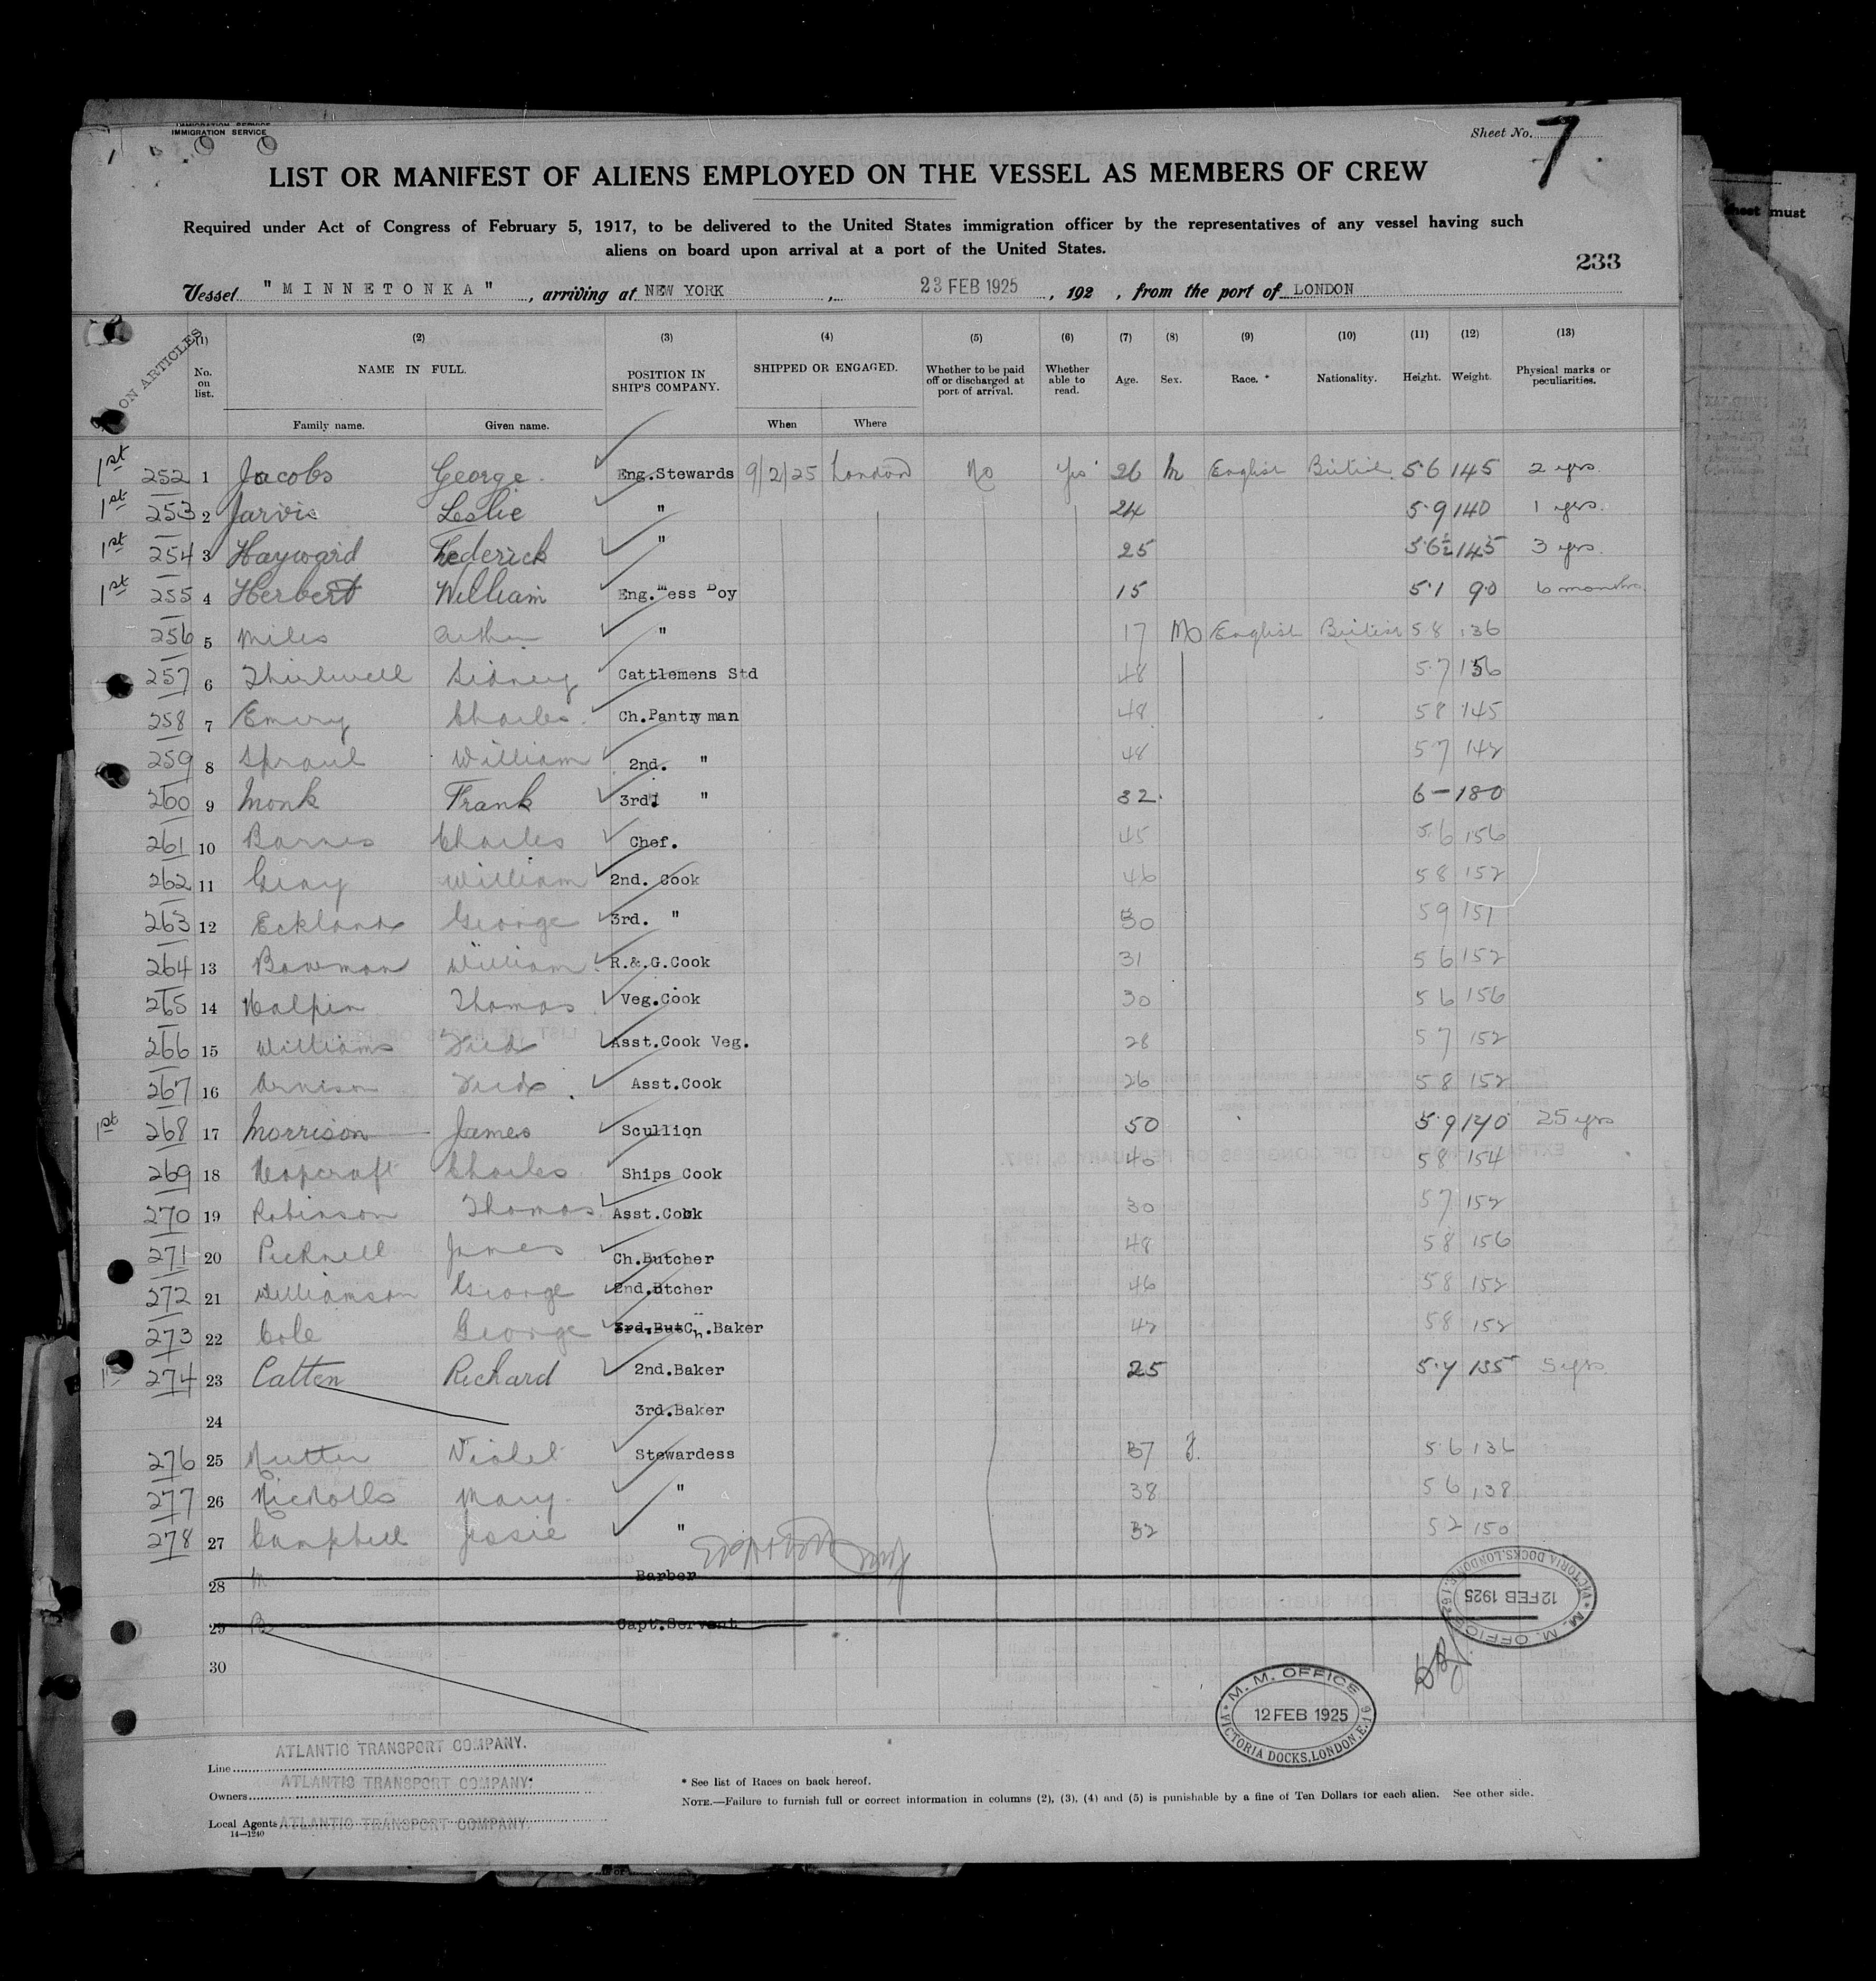 IMMIGRATION SERVICE
Sheet No. 7
LIST OR MANIFEST OF ALIENS EMPLOYED ON THE VESSEL AS MEMBERS OF CREW
Required under Act of Congress of February 5, 1917, to be delivered to the United States immigration officer by the representatives of any vessel having such
aliens on board upon arrival at a port of the United States.
233
Vessel "MINNETONKA", arriving at NEW YORK, 23 FEB 1925, 192 , from the port of LONDON
ON ARTICLES
(1) (2) (3) (4) (5) (6) (7) (8) (9) (10) (11) (12) (13)
No. on list. NAME IN FULL. POSITION IN SHIP'S COMPANY. SHIPPED OR ENGAGED. Whether to be paid off or discharged at port of arrival. Whether able to read. Age. Sex. Race. * Nationality. Height. Weight. Physical marks or peculiarities.
Family name. Given name. When Where
1st 252 1 Jacobs George Eng.Stewards 9/2/25 London No Yes 26 M English British 5.6 145 2 yrs.
1st 253 2 Jarvis Leslie " 24 5.9 140 1 yrs.
1st 254 3 Hayward Frederick " 25 5.6½ 145 3 yrs.
1st 255 4 Herbert William Eng.Mess Boy 15 5.1 90 6 months
256 5 Miles Arthur " 17 Mo English British 5 8 136
257 6 Thirlwell Sidney Cattlemens Std 48 5.7 156
258 7 Emery Charles Ch.Pantry man 48 5 8 145
259 8 Sproul William 2nd. " 48 5 7 142
260 9 Monk Frank 3rd. " 32 6 - 180
261 10 Barnes Charles Chef. 45 5.6 156
262 11 Gray William 2nd. Cook 46 5 8 152
263 12 Eckland George 3rd. " 30 5 9 151
264 13 Bowman William R.&.G.Cook 31 5 6 152
265 14 Halpin Thomas Veg.Cook 30 5 6 156
266 15 Williams Fred Asst.Cook Veg. 28 5 7 152
267 16 Arnison Fred Asst.Cook 26 5 8 152
1st 268 17 Morrison James Scullion 50 5.9 140 25 yrs
269 18 Heapcraft Charles Ships Cook 40 5 8 154
270 19 Robinson Thomas Asst.Cook 30 5 7 152
271 20 Picknell James Ch.Butcher 48 5 8 156
272 21 Williamson George 2nd.Btcher 46 5 8 152
273 22 Cole George 3rd.But Ch.Baker 42 5 8 152
274 23 Catten Richard 2nd.Baker 25 5.7 135 5 yrs.
24 3rd.Baker
276 25 Nutter Violet Stewardess 37 f. 5.6 136
277 26 Nicholls Mary " 38 5 6 138
278 27 Campbell Jessie " 32 5 2 150
28 M Barber
29 B Capt.Servant
30
M. M. OFFICE
12 FEB 1925
VICTORIA DOCKS, LONDON.E.16
M. M. OFFICE
12 FEB 1925
VICTORIA DOCKS, LONDON.E.16
Line ATLANTIC TRANSPORT COMPANY.
Owners ATLANTIC TRANSPORT COMPANY.
Local Agents ATLANTIC TRANSPORT COMPANY.
14—1240
* See list of Races on back hereof.
NOTE.—Failure to furnish full or correct information in columns (2), (3), (4) and (5) is punishable by a fine of Ten Dollars for each alien. See other side.
sheet must